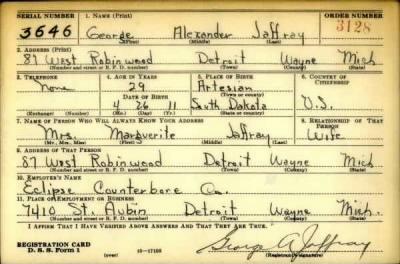 SERIAL NUMBER 1. NAME (Print) ORDER NUMBER
3646 George Alexander Jaffray 3128
(First) (Middle) (Last)
2. ADDRESS (Print)
87 West Robinwood Detroit Wayne Mich
(Number and street or R. F. D. number) (Town) (County) (State)
3. TELEPHONE 4. AGE IN YEARS 5. PLACE OF BIRTH 6. COUNTRY OF CITIZENSHIP
None 29 Artesian
DATE OF BIRTH (Town or county)
4 26 11 South Dakota U.S.
(Mo.) (Day) (Yr.) (State or country)
7. NAME OF PERSON WHO WILL ALWAYS KNOW YOUR ADDRESS 8. RELATIONSHIP OF THAT PERSON
Mrs. Marguerite Jaffray Wife
(Mr., Mrs., Miss) (First) (Middle) (Last)
9. ADDRESS OF THAT PERSON
87 West Robinwood Detroit Wayne Mich
(Number and street or R. F. D. number) (Town) (County) (State)
10. EMPLOYER'S NAME
Eclipse Counterbore Co.
11. PLACE OF EMPLOYMENT OR BUSINESS
7410 St. Aubin Detroit Wayne Mich.
(Number and street or R. F. D. number) (Town) (County) (State)
I AFFIRM THAT I HAVE VERIFIED ABOVE ANSWERS AND THAT THEY ARE TRUE.
REGISTRATION CARD
D. S. S. Form 1 (over) 16-17105 George A Jaffray
(Registrant's signature)